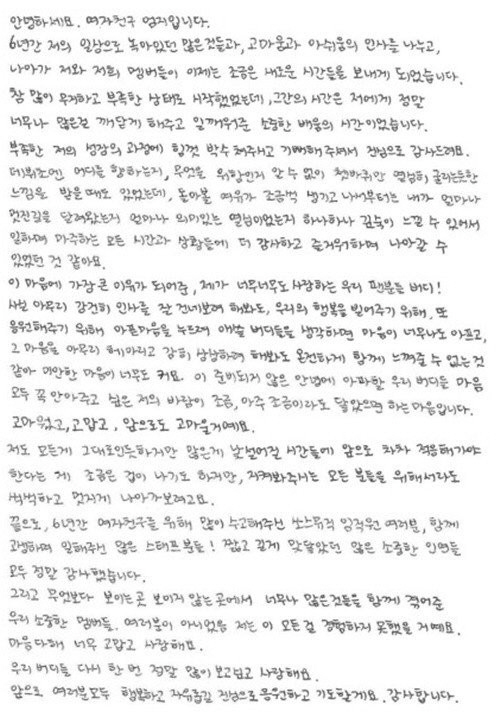 안녕하세요. 여자친구 엄지입니다.
6년간 저의 일상으로 녹아있던 많은것들과, 고마움과 아쉬움의 인사를 나누고,
나아가 저와 저희 멤버들이 이제는 조금은 새로운 시간들을 보내게 되었습니다.
참 많이 무지하고 부족한 상태로 시작했었는데, 그간의 시간은 저에게 정말
너무나 많은걸 깨닫게 해주고 일깨워준 소중한 배움의 시간이었습니다.
부족한 저의 성장의 과정에 힘껏 박수 쳐주시고 기뻐해 주셔서 진심으로 감사드려요.
데뷔초엔 어디를 향하는지, 무엇을 위함인지 알 수 없이 쳇바퀴만 열심히 굴리는듯한
느낌을 받을 때도 있었는데, 돌아볼 여유가 조금씩 생기고 나서부터는 내가 얼마나
멋진길을 달려왔는지 얼마나 의미있는 열심이었는지 하나하나 깊숙이 느낄 수 있어서
일하며 마주하는 모든 시간과 상황들에 더 감사하고 즐거워하며 나아갈 수
있었던 것 같아요.
이 마음에 가장 큰 이유가 되어준, 제가 너무너무도 사랑하는 우리 팬분들 버디!
사실 아무리 감건히 인사를 잘 건네보려 해봐도, 우리의 행복을 빌어주기 위해, 또
응원해주기 위해 아픈마음을 누르며 애쓸 버디들을 생각하면 마음이 너무나도 아프고,
그 마음을 아무리 헤아리고 감히 상상하려 해봐도 온전하게 함께 느껴줄 수 없는것
같아 미안한 마음이 너무도 커요. 이 준비되지 않은 안녕에 아파할 우리 버디들 마음
모두 꼭 안아주고 싶은 저의 바람이 조금, 아주 조금이라도 닿았으면 하는 마음입니다.
고마웠고, 고맙고, 앞으로도 고마울거예요.
저도 모든게 그대로인듯하지만 많은게 낯설어질 시간들에 앞으로 차차 적응해가야
한다는 게 조금은 겁이 나기도 하지만, 지켜봐주시는 모든 분들을 위해서라도
씩씩하고 멋지게 나아가보려고요.
끝으로, 6년간 여자친구를 위해 많이 수고해주신 쏘스뮤직 임직원 여러분, 함께
고생하며 일해주신 많은 스태프분들! 짧고 길게 맞닿았던 많은 소중한 인연들
모두 정말 감사했습니다.
그리고 무엇보다 보이는곳 보이지 않는곳에서 너무나 많은것들을 함께 겪어준
우리 소중한 멤버들. 여러분이 아니었음 저는 이 모든걸 경험하지 못했을 거예요.
마음다해 너무 고맙고 사랑해요.
우리 버디들 다시 한 번 정말 많이 보고싶고 사랑해요.
앞으로 여러분 모두 행복하고 자유롭길 진심으로 응원하고 기도할게요. 감사합니다.